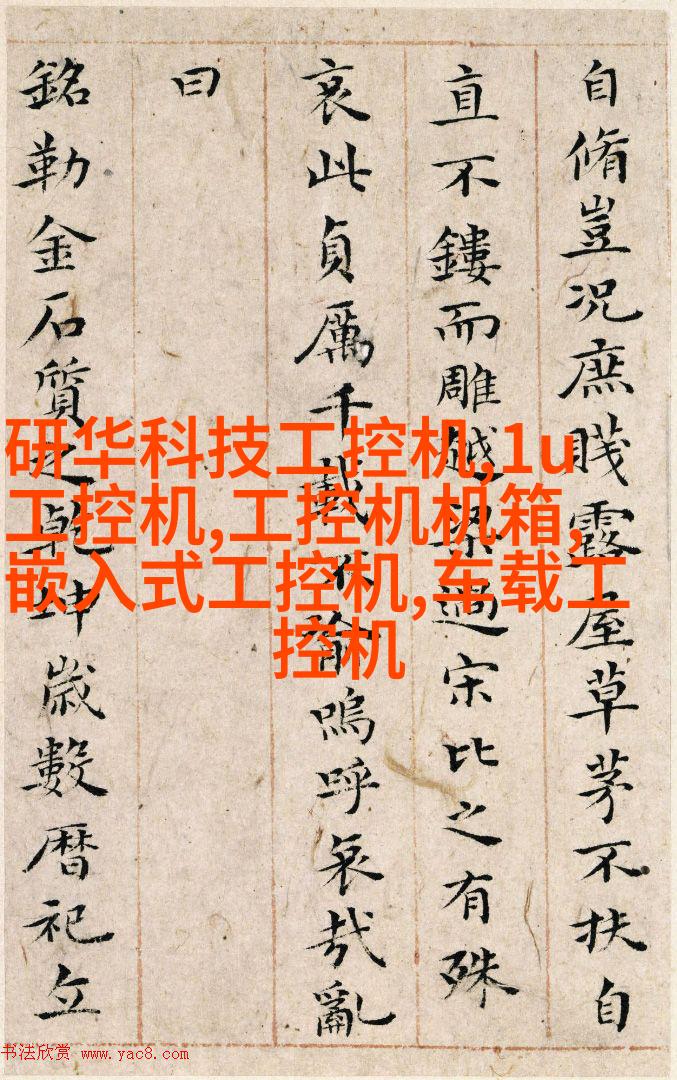 自脩豈況庶賤露屋草茅不扶自
直不鏤而雕越梁過宋比之有殊
哀此貞厲千載不渝嗚呼哀哉亂
曰
銘勒金石質之乾坤歲數曆祀立
研华科技工控机,1u
工控机,工控机机箱,
嵌入式工控机,车载工
控机
书法欣赏 www.yac8.com